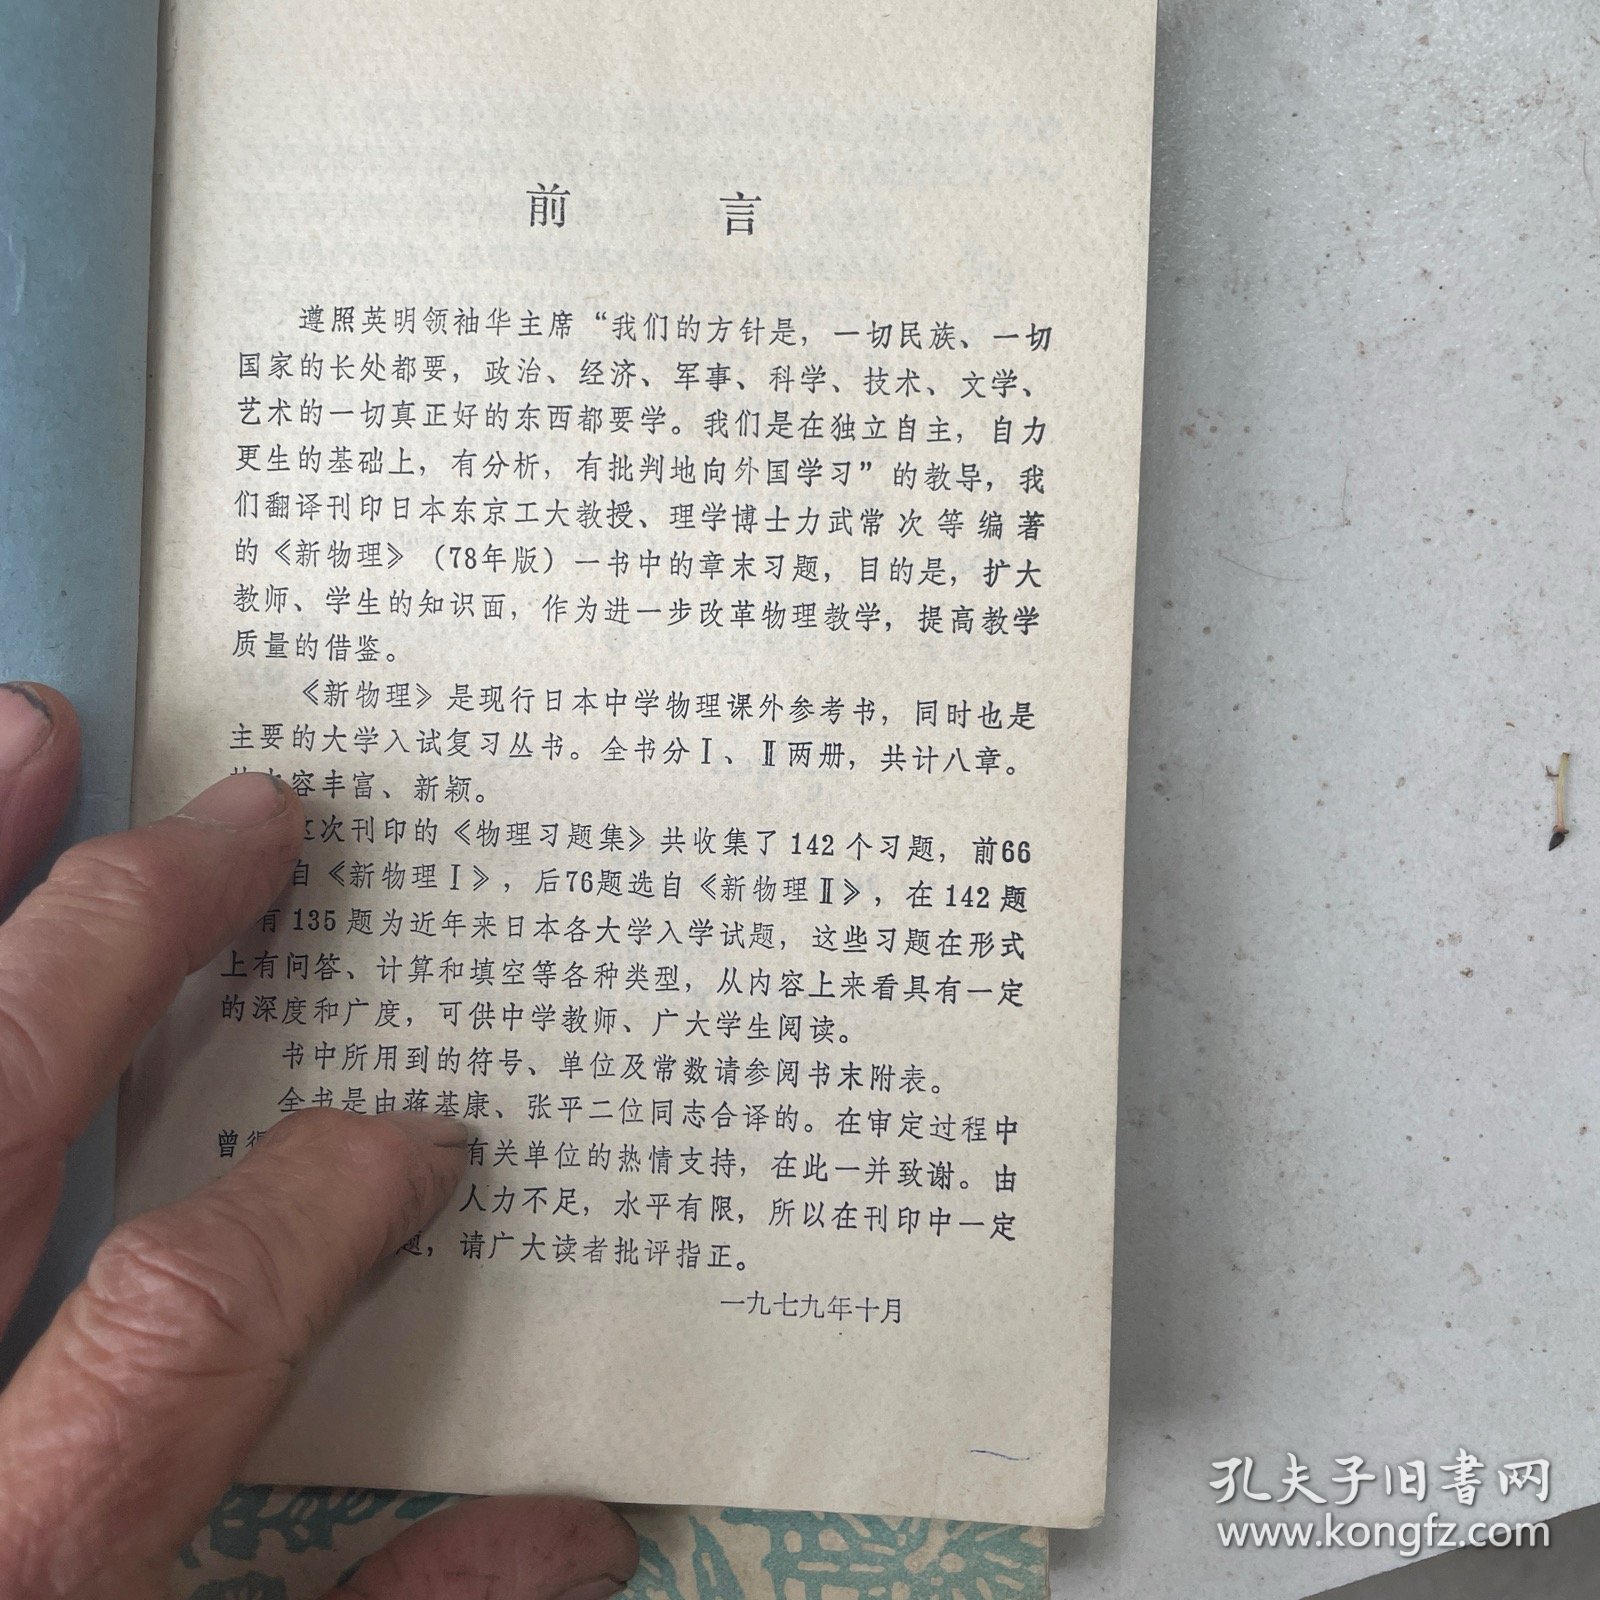 前言
遵照英明领袖华主席“我们的方针是，一切民族、一切
国家的长处都要，政治、经济、军事、科学、技术、文学、
艺术的一切真正好的东西都要学。我们是在独立自主，自力
更生的基础上，有分析，有批判地向外国学习”的教导，我
们翻译刊印日本东京工大教授、理学博士力武常次等编著
的《新物理》（78年版）一书中的章末习题，目的是，扩大
教师、学生的知识面，作为进一步改革物理教学，提高教学
质量的借鉴。
《新物理》是现行日本中学物理课外参考书，同时也是
主要的大学入试复习丛书。全书分Ⅰ、Ⅱ两册，共计八章。
容丰富、新颖。
次刊印的《物理习题集》共收集了142个习题，前66
自《新物理Ⅰ》，后76题选自《新物理Ⅱ》，在142题
有135题为近年来日本各大学入学试题，这些习题在形式
上有问答、计算和填空等各种类型，从内容上来看具有一定
的深度和广度，可供中学教师、广大学生阅读。
书中所用到的符号、单位及常数请参阅书末附表。
全书是由蒋基康、张平二位同志合译的。在审定过程中
曾得有关单位的热情支持，在此一并致谢。由
人力不足，水平有限，所以在刊印中一定
题，请广大读者批评指正。
一九七九年十月
孔夫子旧书网
www.kongfz.com